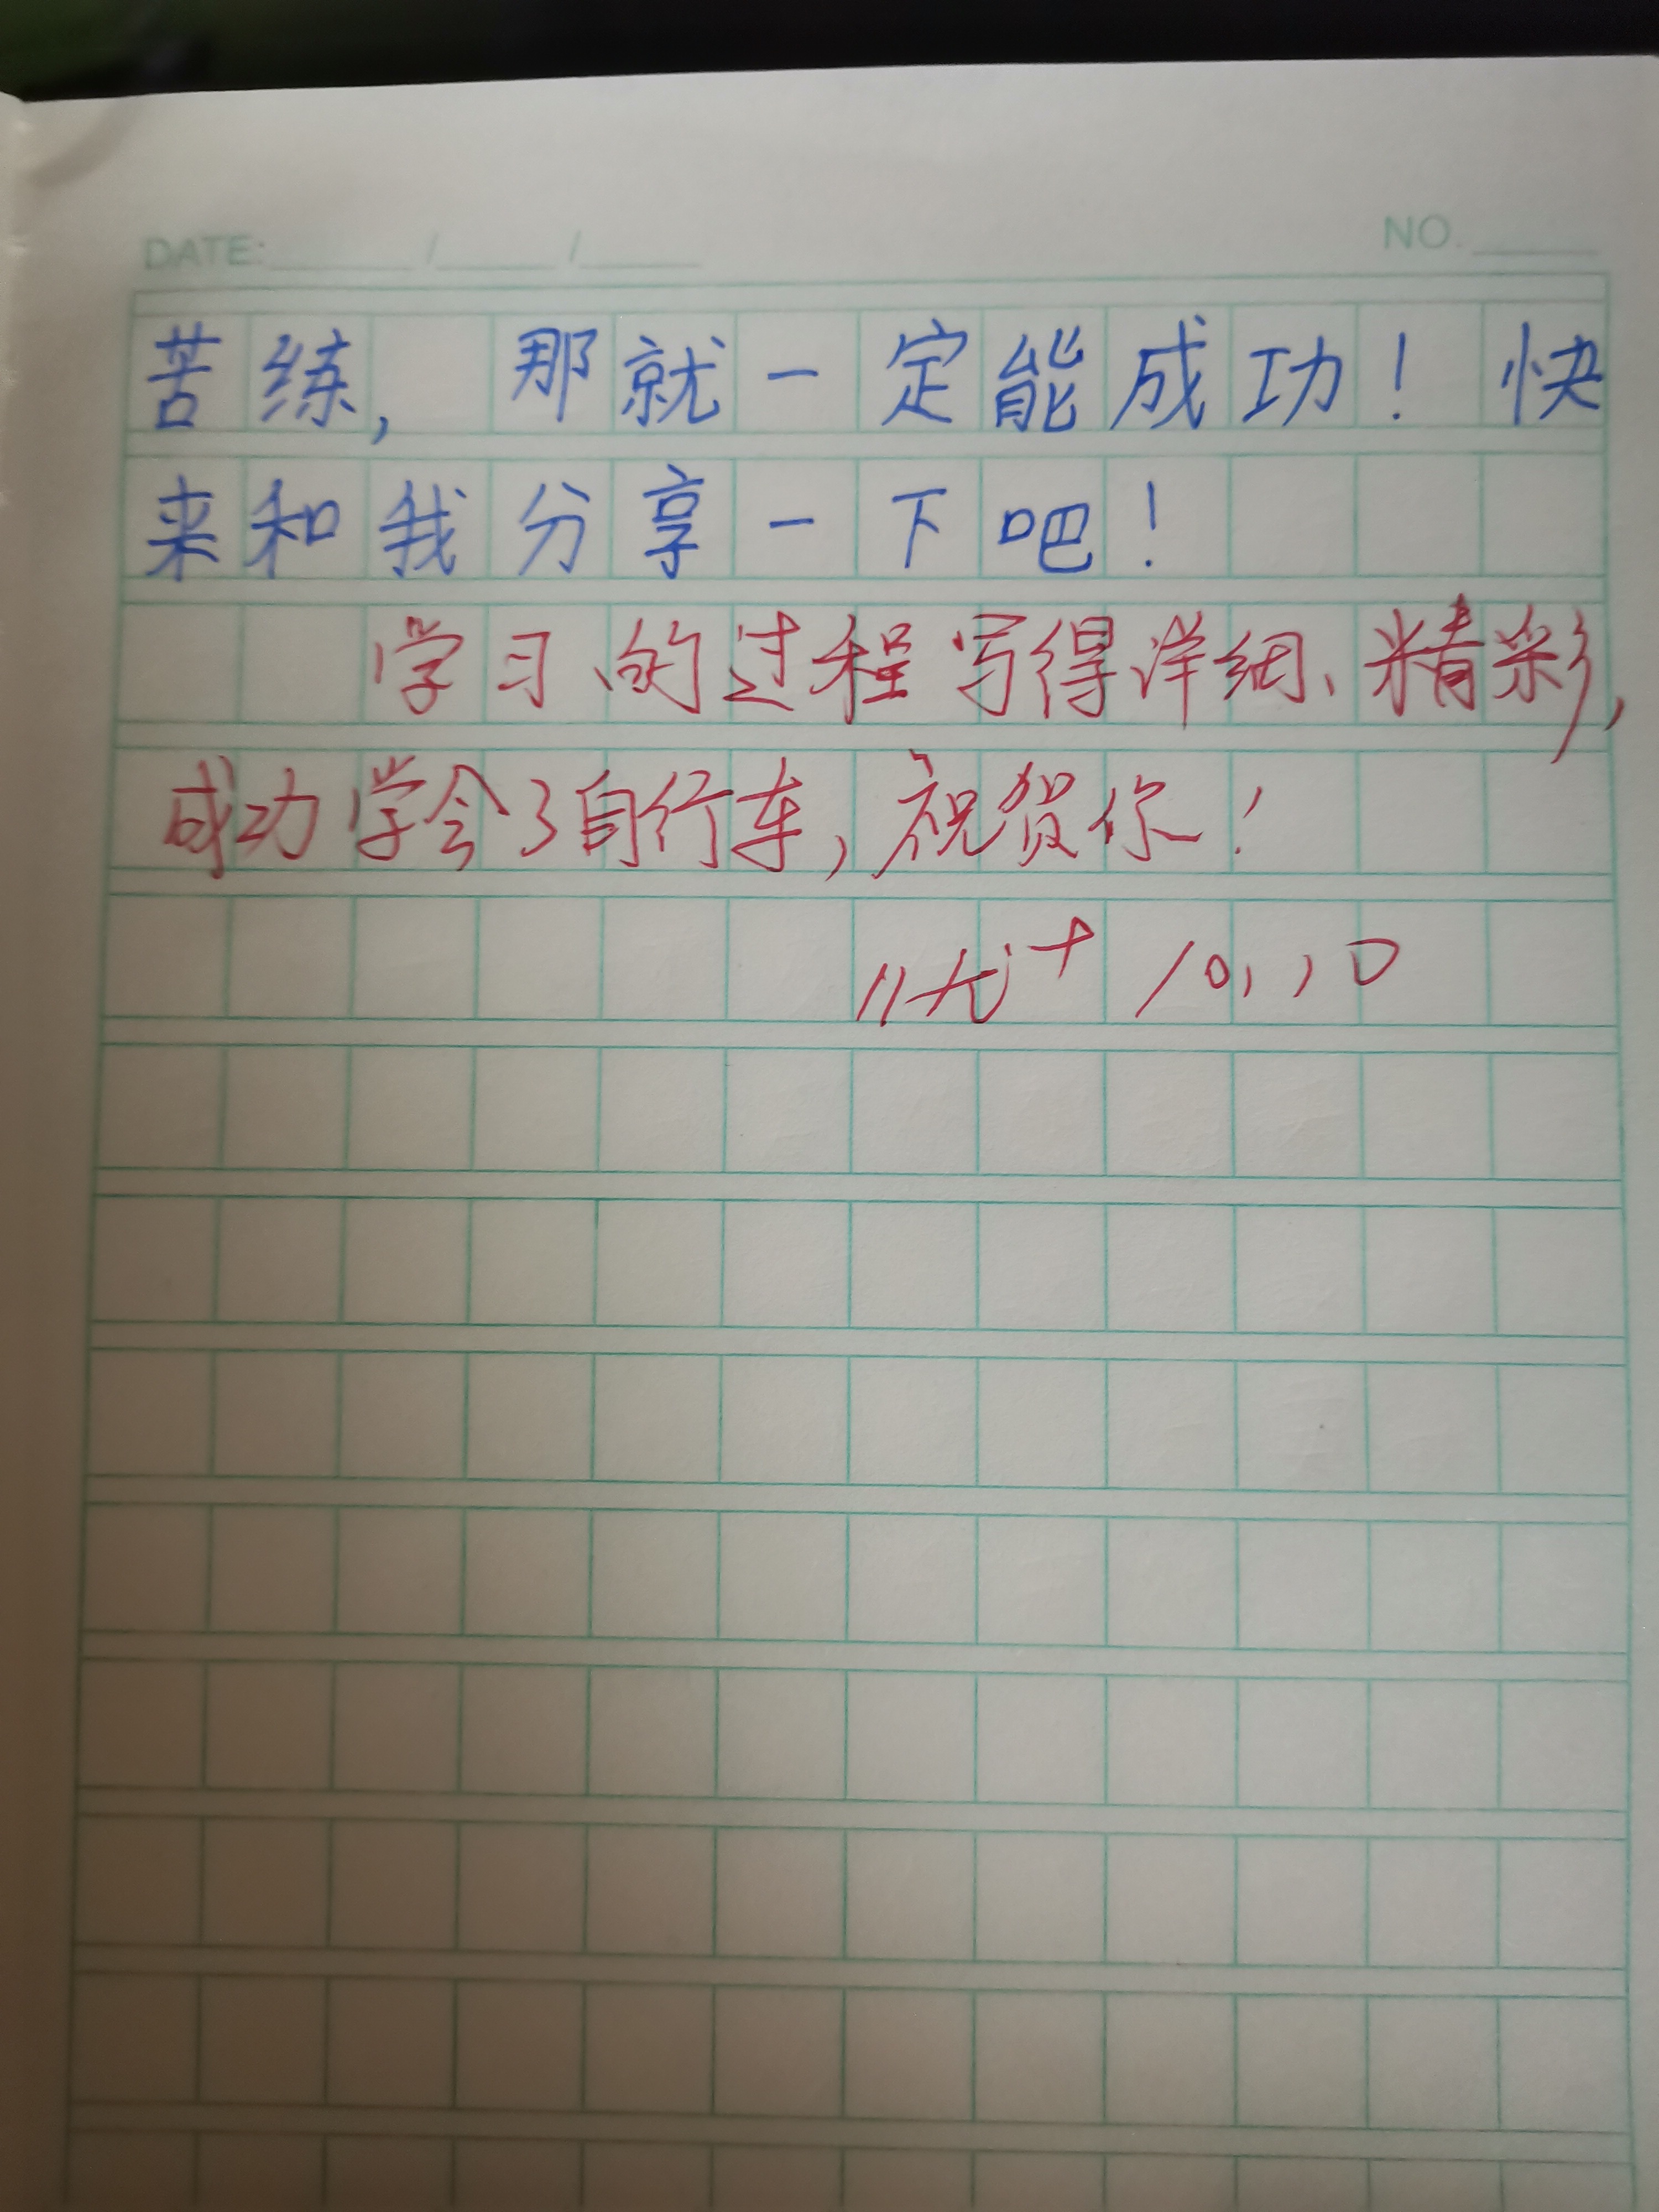 DATE: / / NO.
苦练，那就一定能成功！快
来和我分享一下吧！
学习的过程写得详细、精彩，
成功学会了自行车，祝贺你！
优+ 10,10